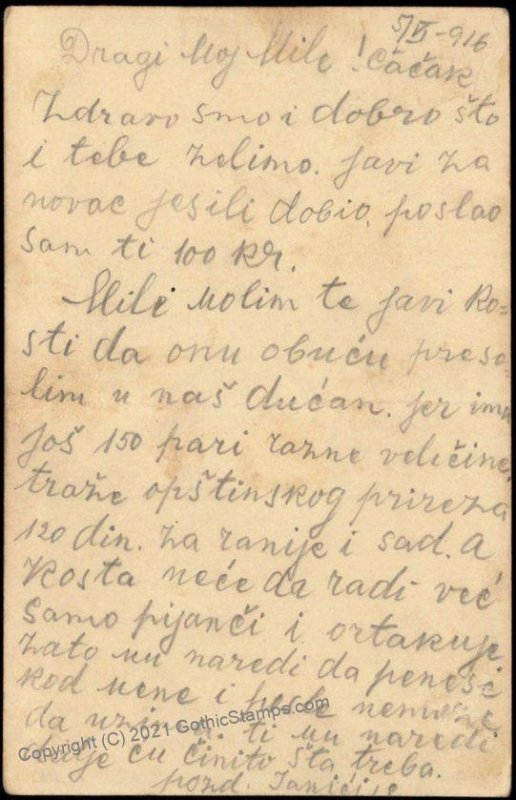 5/VI-916
Dragi Moj Mile! Čačak
Zdravo smo i dobro što
i tebe želimo. Javi za
novac jesili dobio, poslao
sam ti 100 kr.
Mile molim te javi Ko=
sti da onu obuću prese=
lim u naš dućan. jer ima
još 150 pari razne veličine,
traže opštinskog prireza
120 din. za ranije i sad. A
Kosta neće da radi već
samo pijanči i ortakuje.
zato mu naredi da penese
kod mene i posle
da ti mu naredi
dalje ću činito šta treba.
pozd.
Copyright (C) 2021 GothicStamps.com